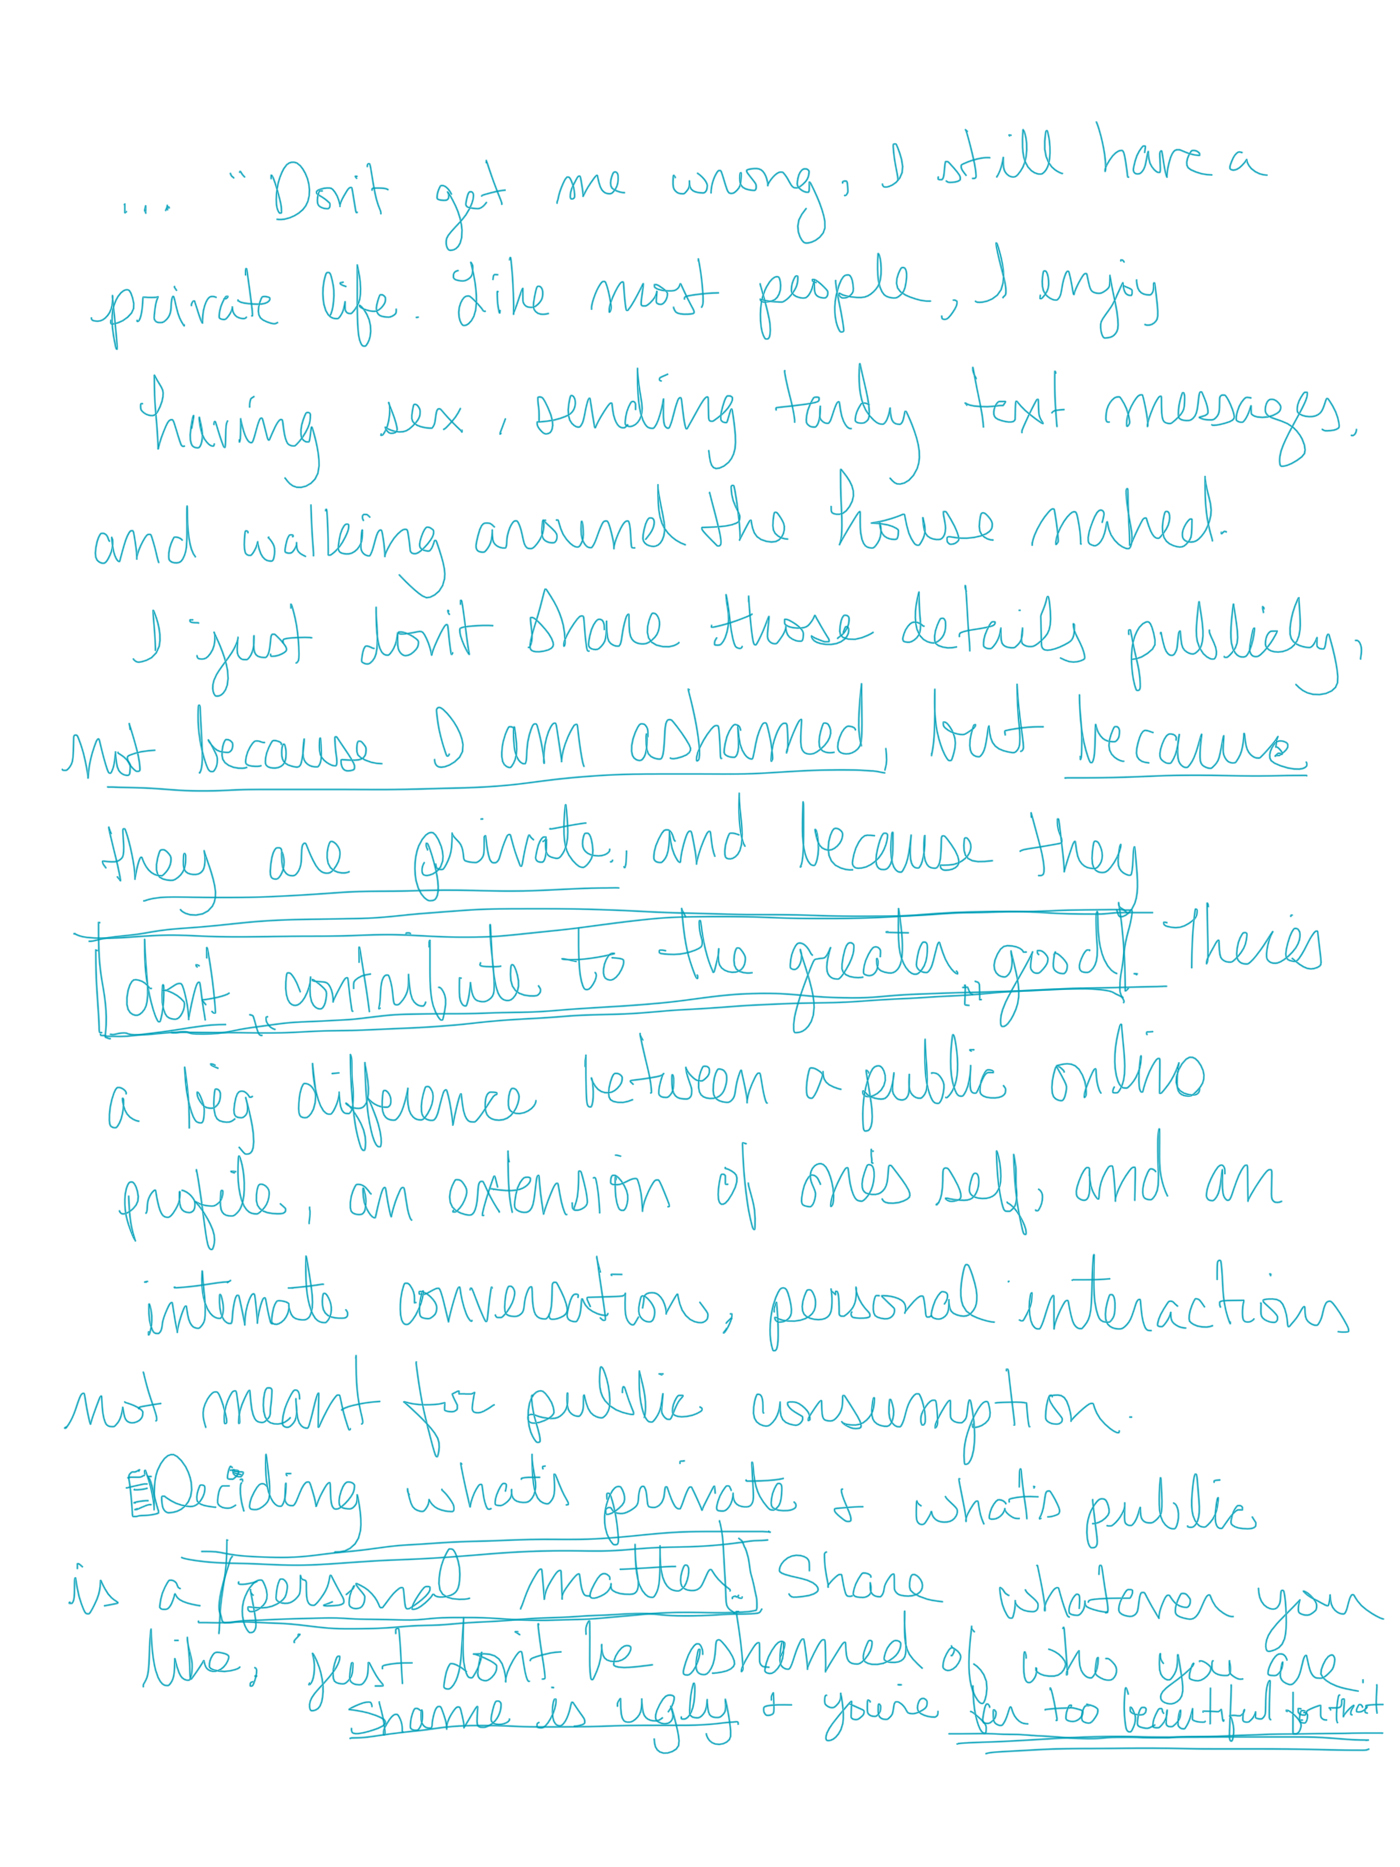 ... "Don't get me wrong, I still have a
private life. Like most people, I enjoy
having sex, sending tardy text messages,
and walking around the house naked.
I just don't share those details publicly,
not because I am ashamed, but because
they are private, and because they
don't "contribute to the greater good". There's
a big difference between a public online
profile, an extension of one's self, and an
intimate conversation, personal interactions
not meant for public consumption.
Deciding what's private & what's public
is a personal matter. Share whatever you
like, just don't be ashamed of who you are
shame is ugly & you're far too beautiful for that